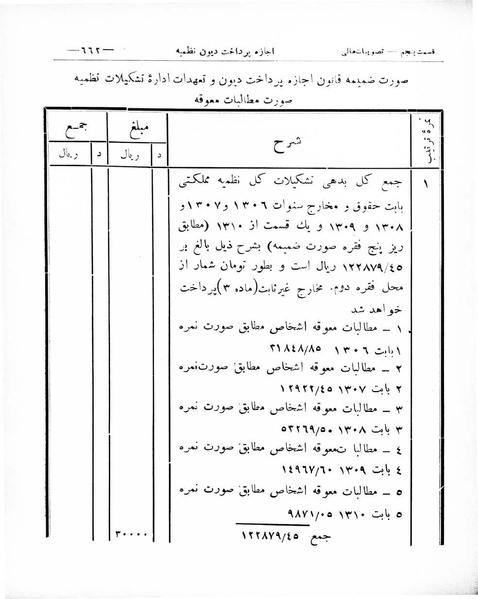 قسمت پنجم — تصویبات مالی
اجازه پرداخت دیون نظمیه
—۶۶۲—
صورت ضمیمه قانون اجازه پرداخت دیون و تعهدات ادارهٔ تشکیلات نظمیه
صورت مطالبات معوقه
نمرهٔ ترتیب
شرح
مبلغ
جمع
ریال
د
ریال
د
۱
جمع کل بدهی تشکیلات کل نظمیه مملکتی
بابت حقوق و مخارج سنوات ۱۳۰۶ و ۱۳۰۷ و
۱۳۰۸ و ۱۳۰۹ و یك قسمت از ۱۳۱۰ (مطابق
ریز پنج فقره صورت ضمیمه) بشرح ذیل بالغ بر
۱۲۲۸۷۹/۴۵ ریال است و بطور تومان شمار از
محل فقره دوم. مخارج غیرثابت(ماده ۳)پرداخت
خواهد شد
۱ – مطالبات معوقه اشخاص مطابق صورت نمره
۱ بابت ۱۳۰۶ ۳۱۸۴۸/۸۵
۲ – مطالبات معوقه اشخاص مطابق صورت نمره
۲ بابت ۱۳۰۷ ۱۲۹۲۲/۴۵
۳ – مطالبات معوقه اشخاص مطابق صورت نمره
۳ بابت ۱۳۰۸ ۵۳۲۶۹/۵۰
۴ – مطالبا تمعوقه اشخاص مطابق صورت نمره
۴ بابت ۱۳۰۹ ۱۴۹۶۷/۶۰
۵ – مطالبات معوقه اشخاص مطابق صورت نمره
۵ بابت ۱۳۱۰ ۹۸۷۱/۰۵
جمع ۱۲۲۸۷۹/۴۵
۳۰۰۰۰